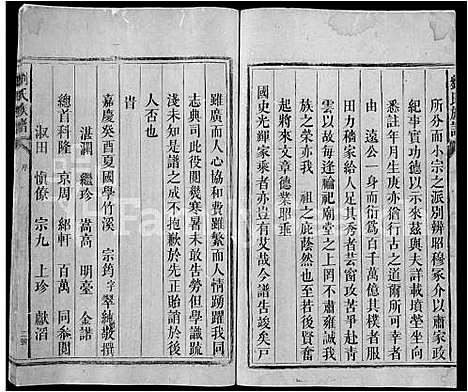 所分而小宗之派別辨昭穆家介以肅家政
紀事實功德以示來茲與夫詳載墳塋存亡
悉註年月生庚亦猶行古之道爾所可幸者
由遠公一身而衍爲百千萬億其樸者服
疇力業一再傳足其秀者芸窗攻苦争上青
雲以故每逢論祀廟堂之上亦不肅雍誠我
族之榮亦我祖之庇蔭然也至若後賢奮
起將來文章德業昭垂
國史光輝家乘者亦豈有艾哉今譜告竣矣戸
雖廣而人心協和費雖繁而人情踴躍我
志典司此役閱幾寒暑未敢告勞但學識疏
淺未知是譜之成不抱歉於先正貽誚於後
人否也
嘉慶癸酉夏國學竹溪 宗筠字翠純敬撰
湛潤 繼珍 嵩高 明臺 金諾
總首科隆 京周 紹軒 百萬 同叅閱
淑田 慎僚 宗九 上珍 獻滔
劉氏族譜